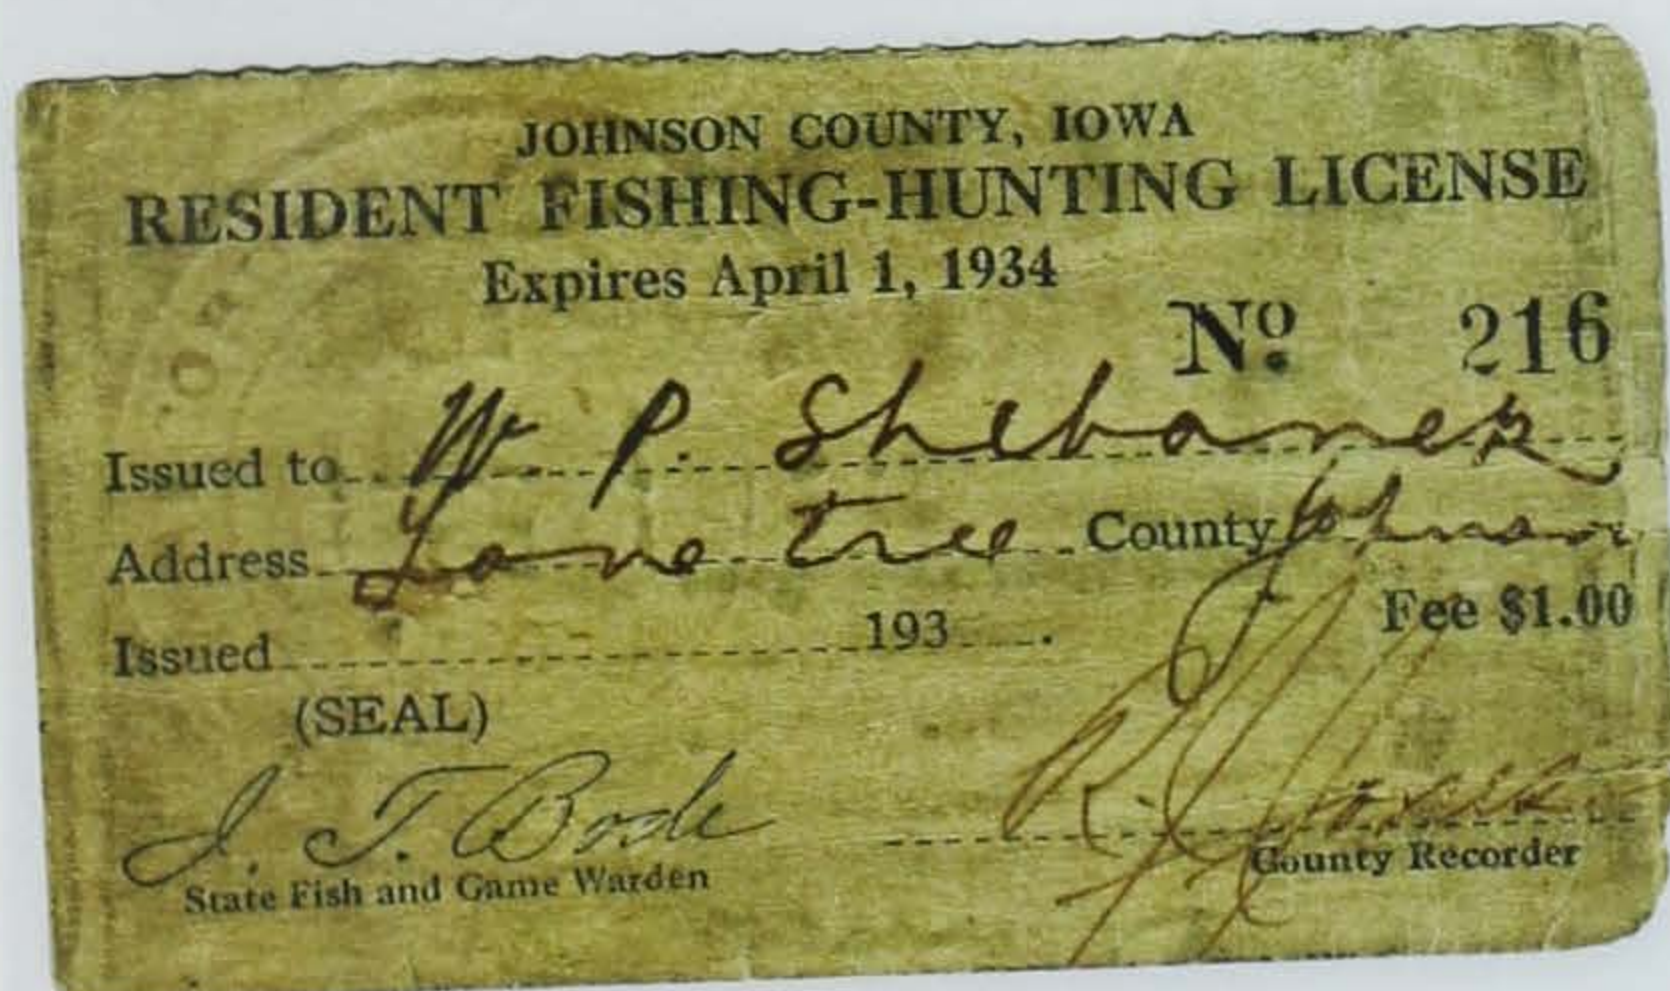 JOHNSON COUNTY, IOWA
RESIDENT FISHING-HUNTING LICENSE
Expires April 1, 1934
Nº 216
Issued to W. P. Shebanek
Address Lone tree County Johnson
Issued 193 .
Fee $1.00
(SEAL)
I. T. Bode
R. J.
State Fish and Game Warden
County Recorder